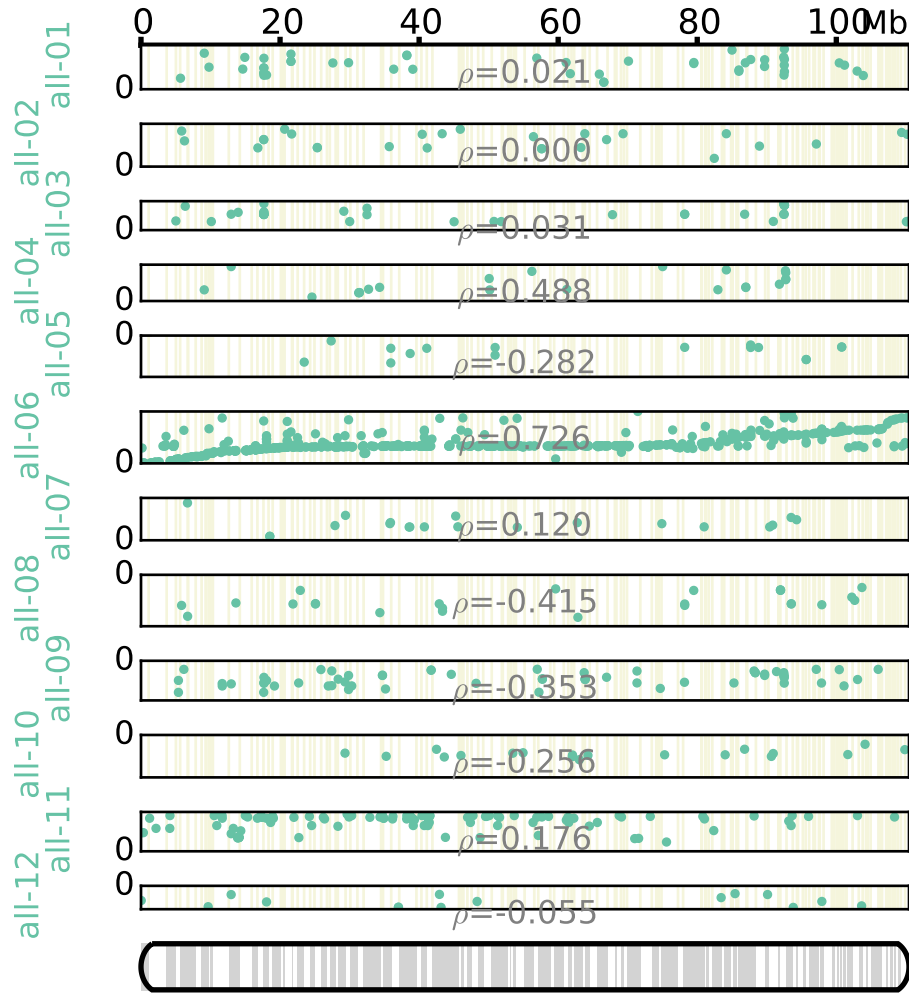 0 20 40 60 80 100 Mb
all-01 0 ρ=0.021
all-02 0 ρ=0.000
all-03 0 ρ=0.031
all-04 0 ρ=0.488
all-05 0 ρ=-0.282
all-06 0 ρ=0.726
all-07 0 ρ=0.120
all-08 0 ρ=-0.415
all-09 0 ρ=-0.353
all-10 0 ρ=-0.256
all-11 0 ρ=0.176
all-12 0 ρ=-0.055